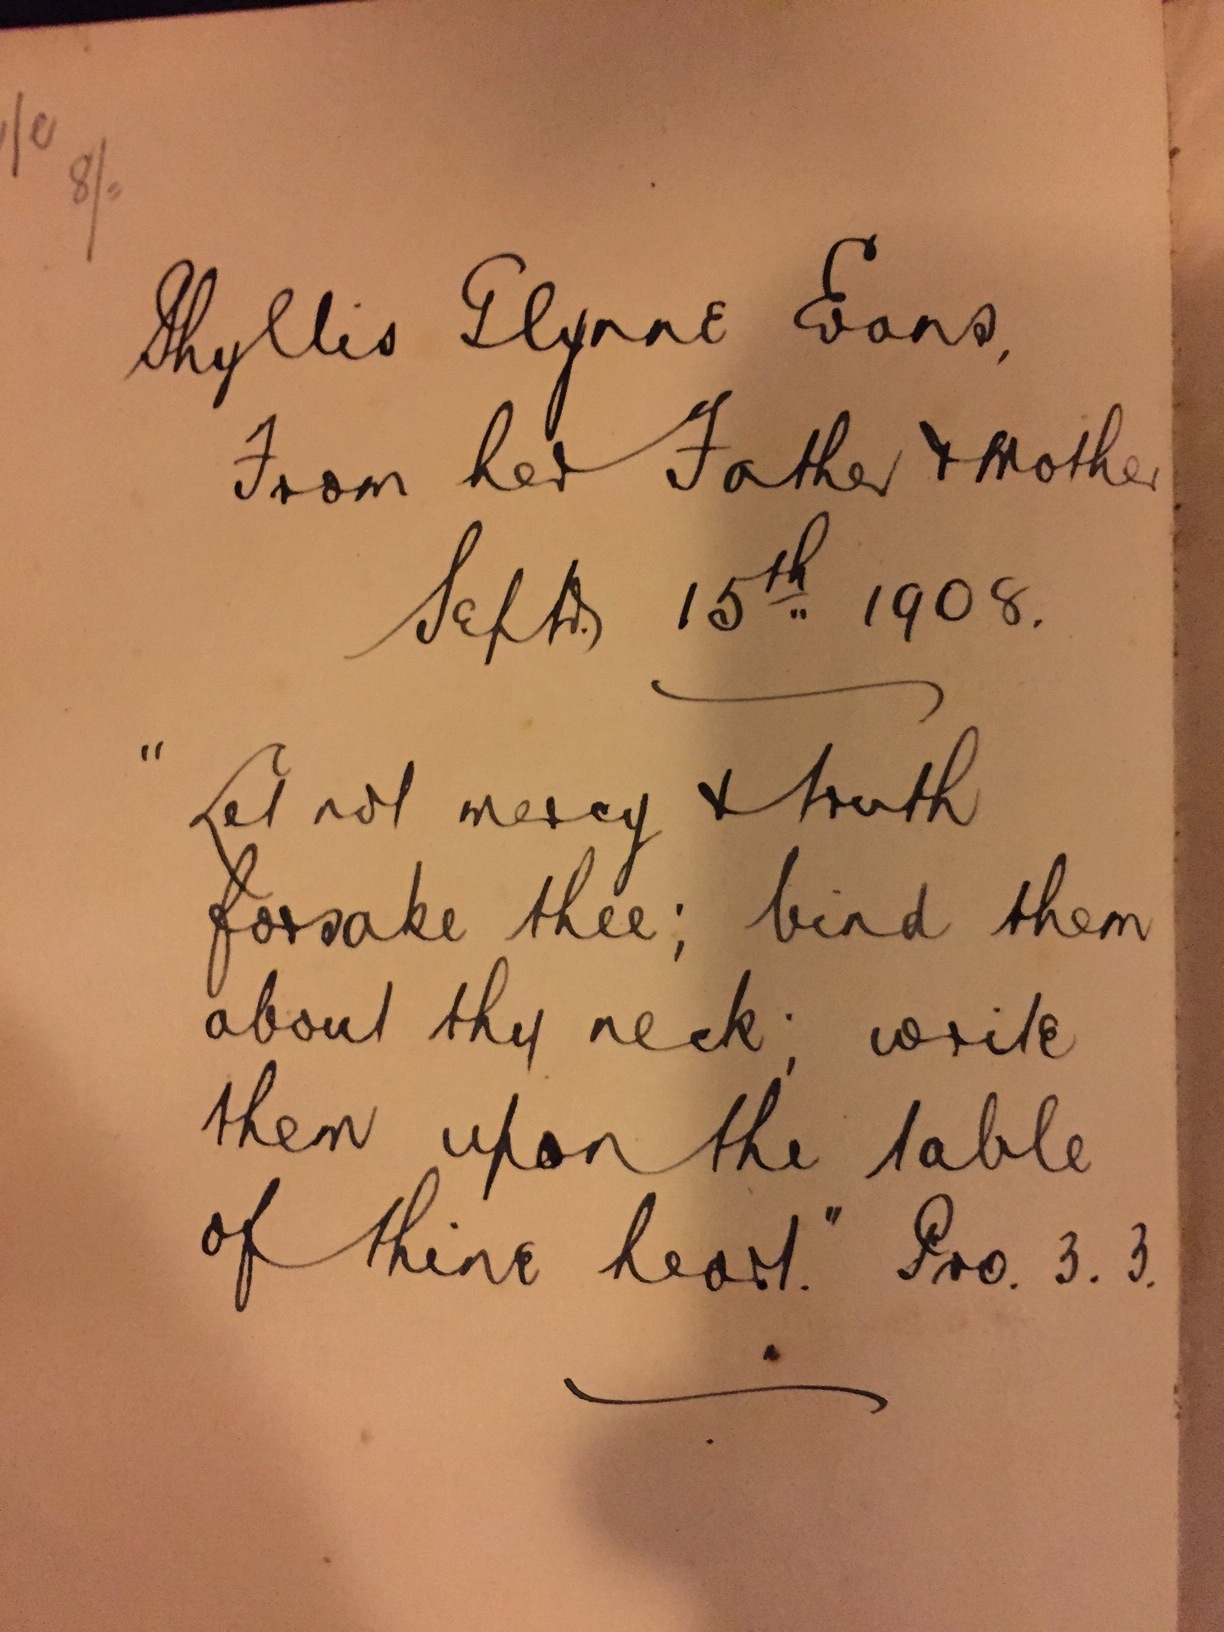 8/=
Phyllis Glynne Evans,
From her Father & Mother
Septr. 15th 1908.
"Let not mercy & truth
forsake thee; bind them
about thy neck; write
them upon the table
of thine heart." Pro. 3. 3.